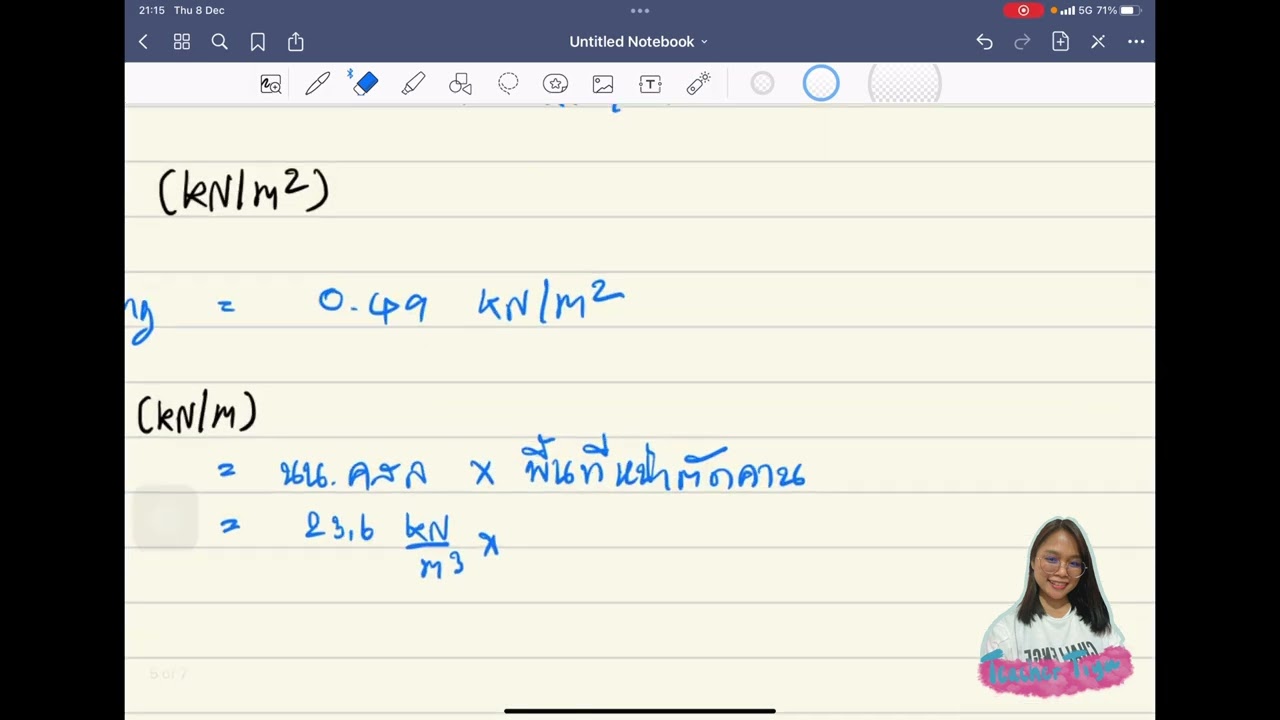 21:15 Thu 8 Dec
5G 71%
Untitled Notebook
(kN/m²)
ng = 0.49 kN/m²
(kN/m)
= นน. คสล x พื้นที่หน้าตัดคาน
= 23.6 kN/m³ x
5 of 7
CHALLENGE
Teacher